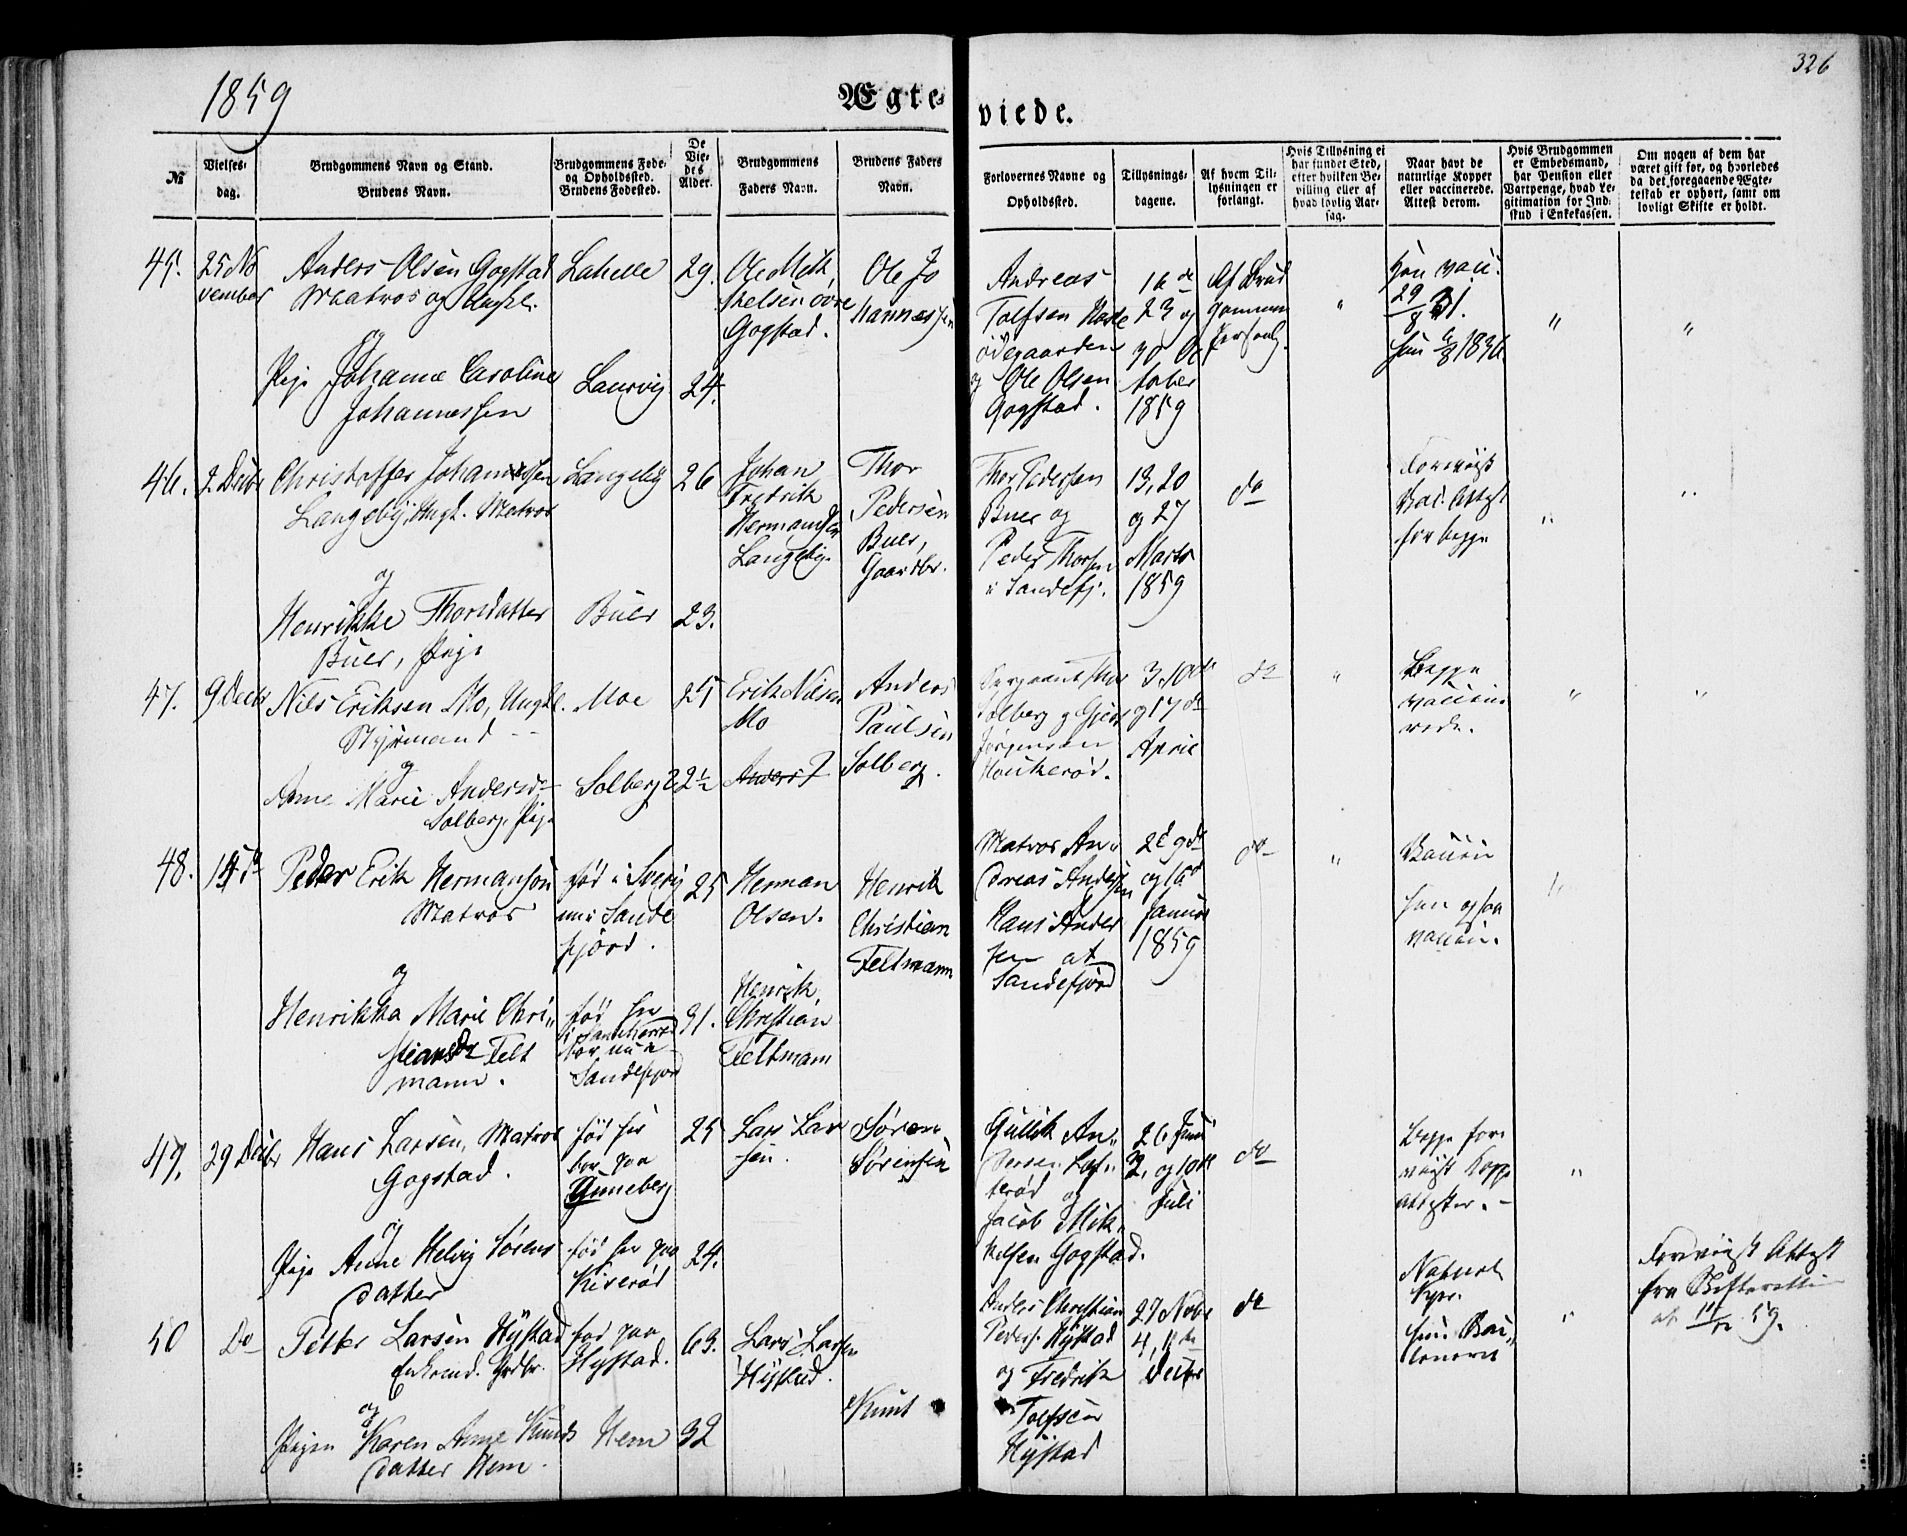 1859
Ægte-
viede.
326
№
Vielses-
dag.
Brudgommens Navn og Stand.
Brudens Navn.
Brudgommens Føde-
og Opholdssted.
Brudens Fødested.
De
Vie-
des
Alder.
Brudgommens
Faders Navn.
Brudens Faders
Navn.
Forlovernes Navne og
Opholdssted.
Tillysnings-
dagene.
Af hvem Til-
lysningen er
forlangt.
Hvis Tillysning ei
har fundet Sted,
efter hvilken Be-
villing eller af
hvad lovlig Aar-
sag.
Naar havt de
naturlige Kopper
eller vaccinerede.
Attest derom.
Hvis Brudgommen
er Embedsmand,
har Pension eller
Vartpenge, hvad Le-
gitimation for Ind-
skud i Enkekassen.
Om nogen af dem har
været gift før, og hvorledes
da det foregaaende Ægte-
teskab er ophørt, samt om
lovligt Skifte er holdt.
45.
25 No
vember
Anders Olsen Gogstad
Matros og Ungkl.
og
Pige Johanne Caroline
Johannessen
Lahelle
Laurvig
29.
24.
Ole Mik
kelsen øvre
Gogstad.
Ole Jo
hannessen
Andreas
Tolfsen
ødegaarden
og Ole Olsen
Gogstad.
16de
23 og
30 Oc
tober
1859
Af Brud
gommen
personlig.
"
Han vacc.
29/8 31.
hun 6/8 1836
"
"
46.
2 Decbr
Christoffer Johannessen
Langeby, Ungk. Matros
og
Henrikke Thorsdatter
Buer, Pige
Langeby
Buer
26
23.
Johan
Fredrik
Hermandsen
Langeby.
Thor
Pedersen
Buer,
Gaardbr.
Thor Pedersen
Buer og
Peder Thorsen
i Sandefj.
13, 20
og 27
Marts
1859
do
Foreviist
Vac. Attest
for begge
"
"
47.
9 Decbr
Nils Eriksen Mo, Ungkl.
Styrmand
og
Anne Marie Andersd
Solberg, Pige
Moe
Solberg
25
22½
Erik Nilsen
Mo
Anders
Paulsen
Solberg.
Sergeant Thor
Solberg og Gjert
Jørgensen
Haukerød.
3, 10de
og 17de
April
do
"
Begge
vaccine
rede.
"
"
48.
15 do
Peder Erik Hermansen
Matros
og
Henrikka Marie Chri-
stiansdr Felt
mann.
fød i Sverig
nu i Sande
fjord.
25
31.
Herman
Olsen.
Henrik
Christian
Feltmann
Henrik
Christian
Feltmann
Matros An-
dreas Andersen
Hans Ander
sen at
Sandefjord
2d 9de
og 16de
Januar
1859
do
"
Vaccin
hun ogsaa
vaccin.
"
47.
29 Decbr
Hans Larsen, Matros
Gogstad.
og
Pige Anne Helvig Sørens
datter
fød her
bor paa
Gunneberg
fød her paa
Kiserød
25
24.
Lars Lar
sen.
Søren
Sørensen
Gullik An-
dersen
og
Jacob Mik
kelsen Gogstad.
26 Juni
3, og 10de
Juli
do
Begge fore
viist Koppe
attester.
"
50
Do
Petter Larsen Hystad
Enkemd. Grdbr.
og
Pigen Karen Anne Knuds
datter Hem.
fød paa
Hystad.
Hem
63.
32
Lars Larsen
Hystad.
Knut
Anders Christian
Peders. Hystad
og Fredrik
Tolfsen
Hystad
27 Novbr
4, 11te
Decbr
do
Naturl.
Kopr.
hun Vac-
cineret
"
Foreviist Attest
fra Skifteretten
af 11/12 59.